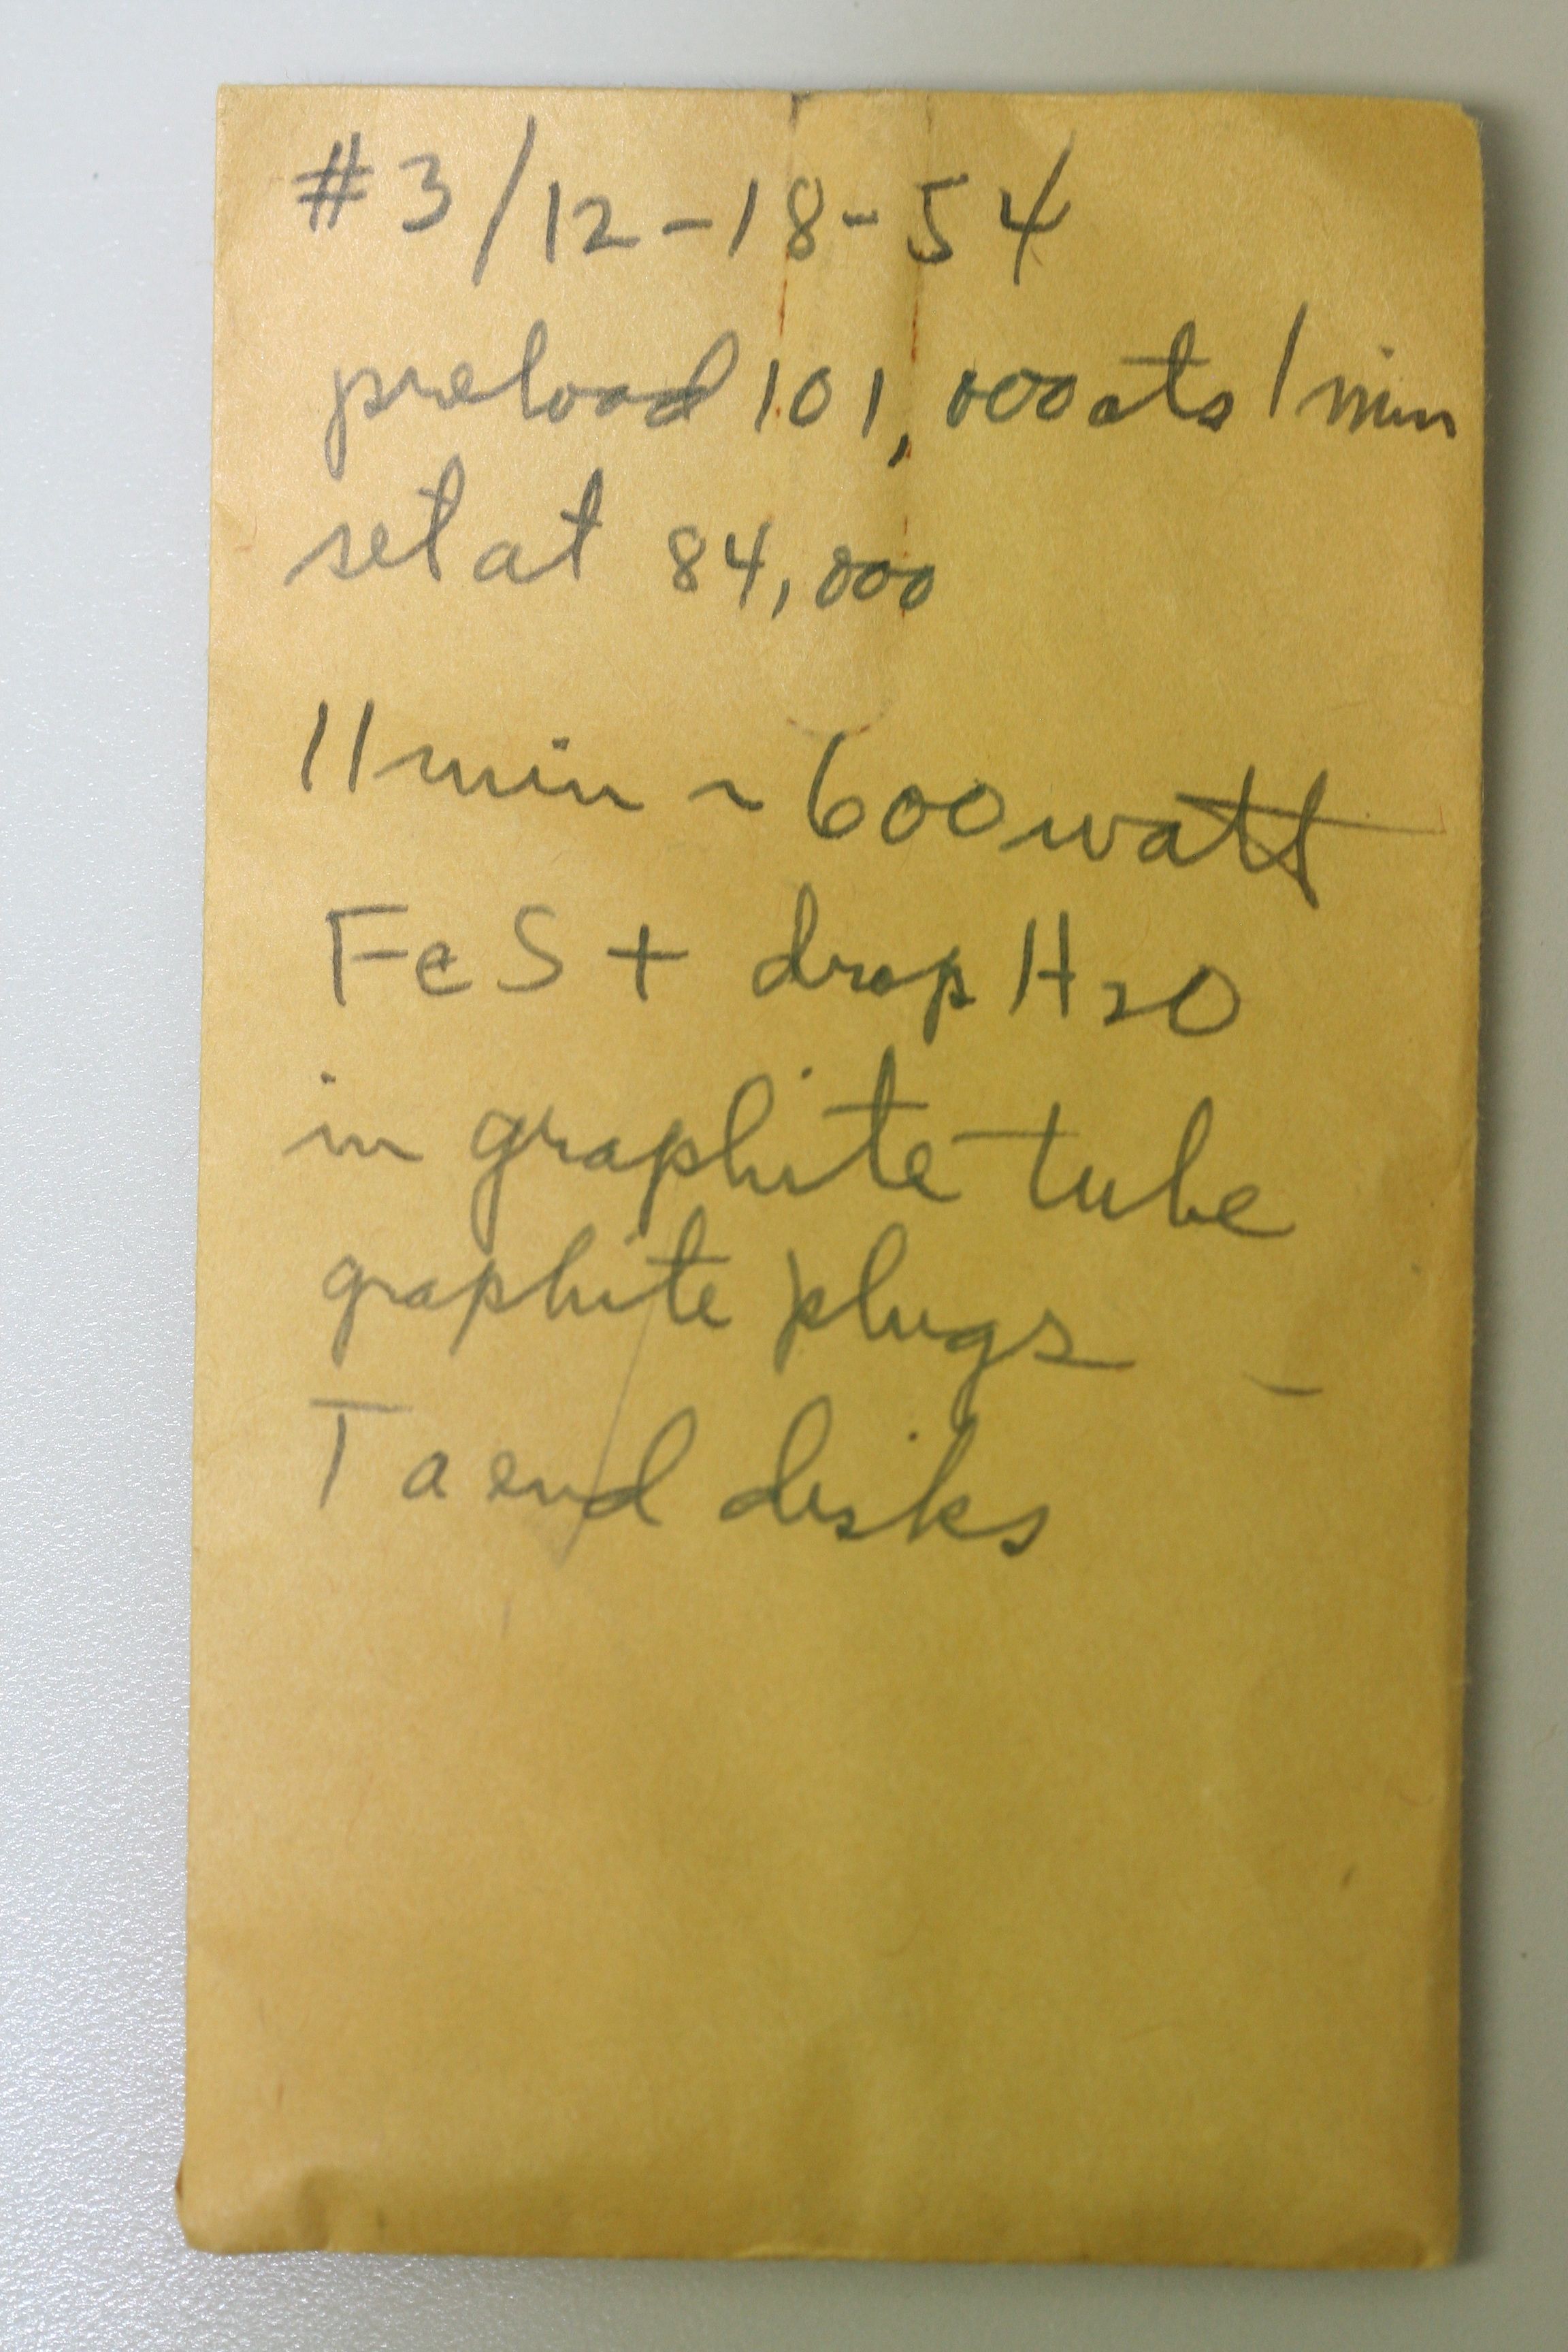 #3/12-18-54
preload 101,000 ats 1 min
set at 84,000
11 min ~ 600 watt
FeS + drop H2O
in graphite tube
graphite plugs -
Ta end disks